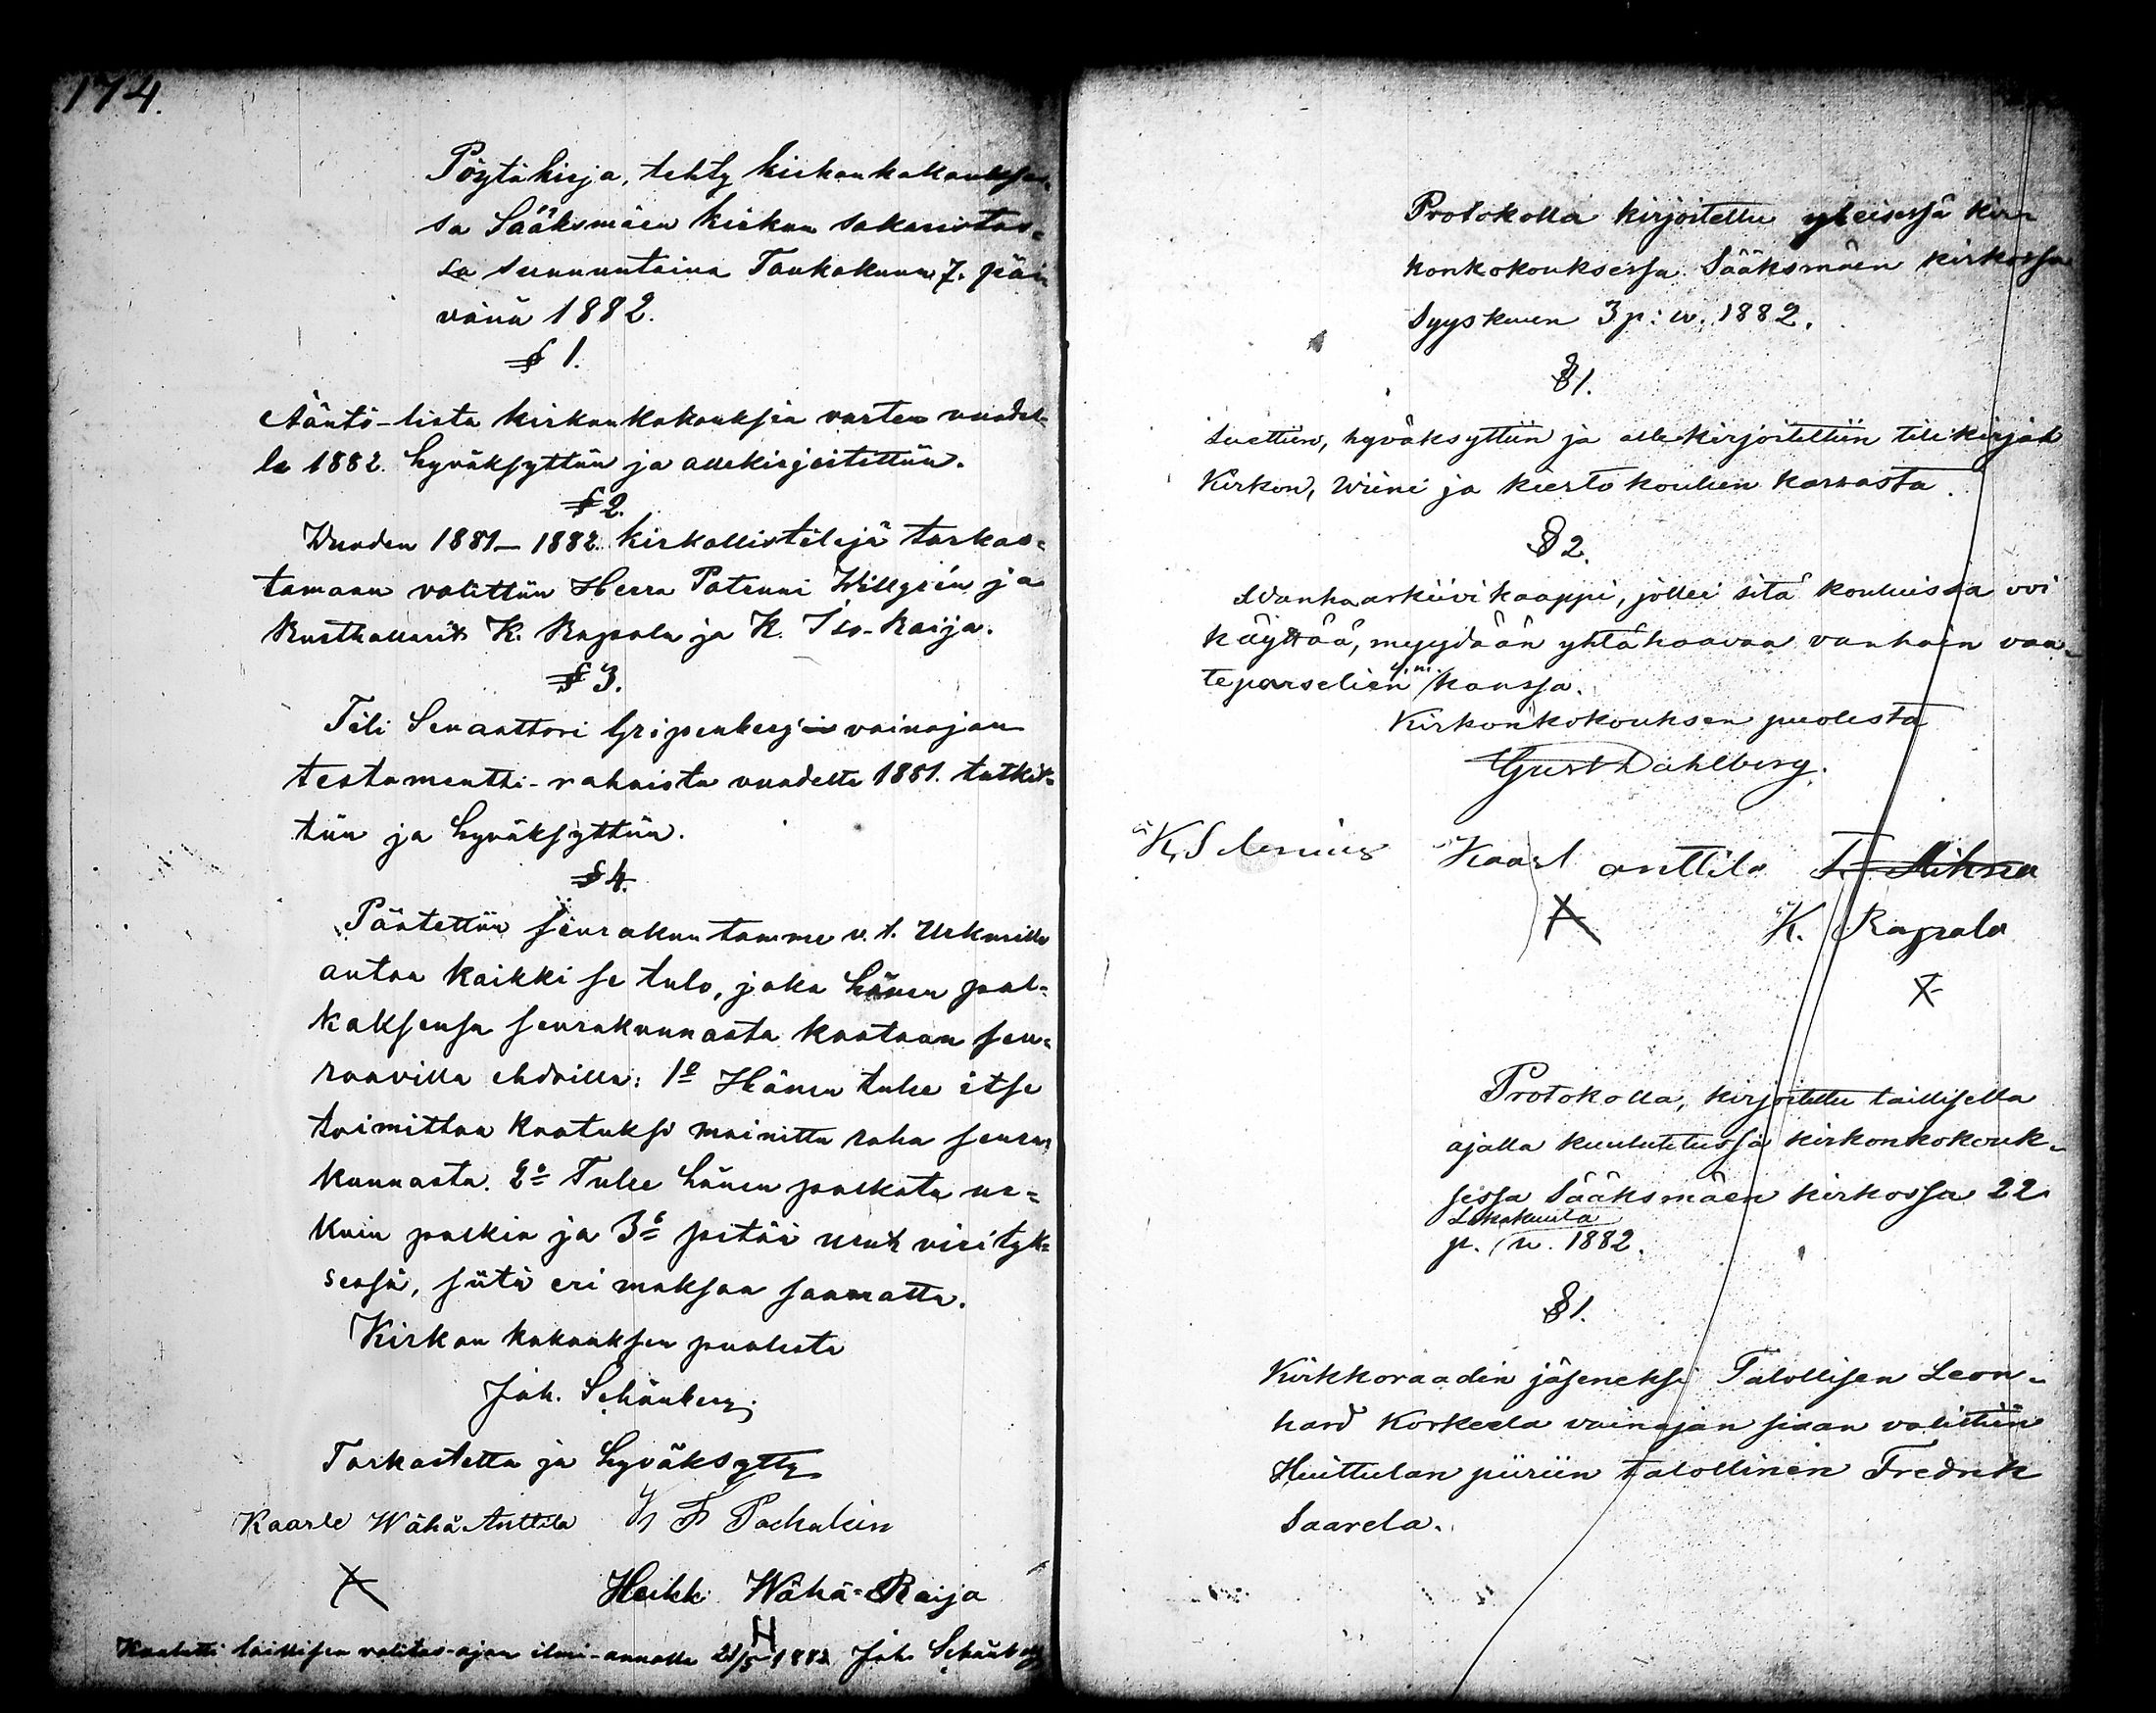 174.
Pöytäkirja, tehty kirkonkokoukses-
sa Sääksmäen kirkon sakaristos-
sa sunnuntaina Toukokuun 7. päi-
vänä 1882.
§ 1.
Ääntö-lista kirkonkokouksia varten vuodel-
le 1882 hyväksyttiin ja allekirjoitettiin.
§ 2.
Wuoden 1881–1882 kirkollistilejä tarkas-
tamaan valittiin Herra Patruni Willgrén ja
Rusthollarit K. Rapola ja K. Iso-Raija.
§ 3.
Tili Senaattori Gripenbergin vainajan
testamentti-rahoista vuodelta 1881. tutkit-
tiin ja hyväksyttiin.
§ 4.
Päätettiin seurakuntamme v. t. Urkurille
antaa kaikki se tulo, joka hänen pal-
kaksensa seurakunnasta kootaan seu-
raavilla ehdoilla: 1o Hänen tulee itse
toimittaa kootuksi mainittu raha seura-
kunnasta. 2o Tulee hänen palkata ur-
kuin polkia ja 3o pitää urut virityk-
sessä, siitä eri maksoa saamatta.
Kirkon kokouksen puolesta
Joh. Schönberg.
Tarkastettu ja hyväksytty
Kaarle Wähä-Anttila K F Pachalein
X Heikki Wähä-Raija
H
Kuulutti laillisen valitus-ajan ilmi-annolla 21/5 1882 Joh. Schönberg
Protokolla kirjoitettu yleisessä kir-
konkokouksessa Sääksmäen kirkossa
Syyskuun 3 p: w. 1882.
§ 1.
Luettiin, hyväksyttiin ja allekirjoitettiin tilikirjat
Kirkon, Wiini ja kiertokoulun kassasta.
§ 2.
Wanha arkiivikaappi, jollei sitä kouluissa voi
käyttää, myydään yhtähaavaa vanhain vaa-
teparselien y. m. kanssa.
Kirkonkokouksen puolesta
Gust Dahlberg.
K. Selenius Kaarl anttila F. Mikna
X K. Rapala
X
Protokolla, kirjoitettu laillisella
ajalla kuulutetussa kirkonkokouk-
sessa Sääksmäen kirkossa 22
Lokakuuta
p. w. 1882.
§ 1.
Kirkkoraadin jäseneksi Talollisen Leon-
hard Korkeela vainajan siaan valittiin
Huittulan piiriin talollinen Fredrik
Saarela.